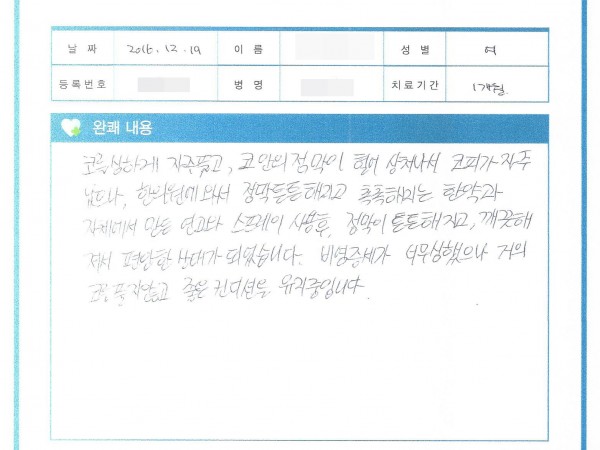 날 짜 2016.12.19 이 름 성 별 여
등록번호 병 명 치료기간 1개월
완쾌 내용
코를 심하게 자주풀고, 코 안의 점막이 헐어 상처나서 코피가 자주
났으나, 한의원에 와서 점막튼튼해지고 촉촉해지는 한약과
자체에서 만든 연고와 스프레이 사용후, 점막이 튼튼해지고, 깨끗해
져서 편안한 상태가 되었습니다. 비염증세가 너무심했으나 거의
코풀지않고 좋은 컨디션을 유지중입니다.